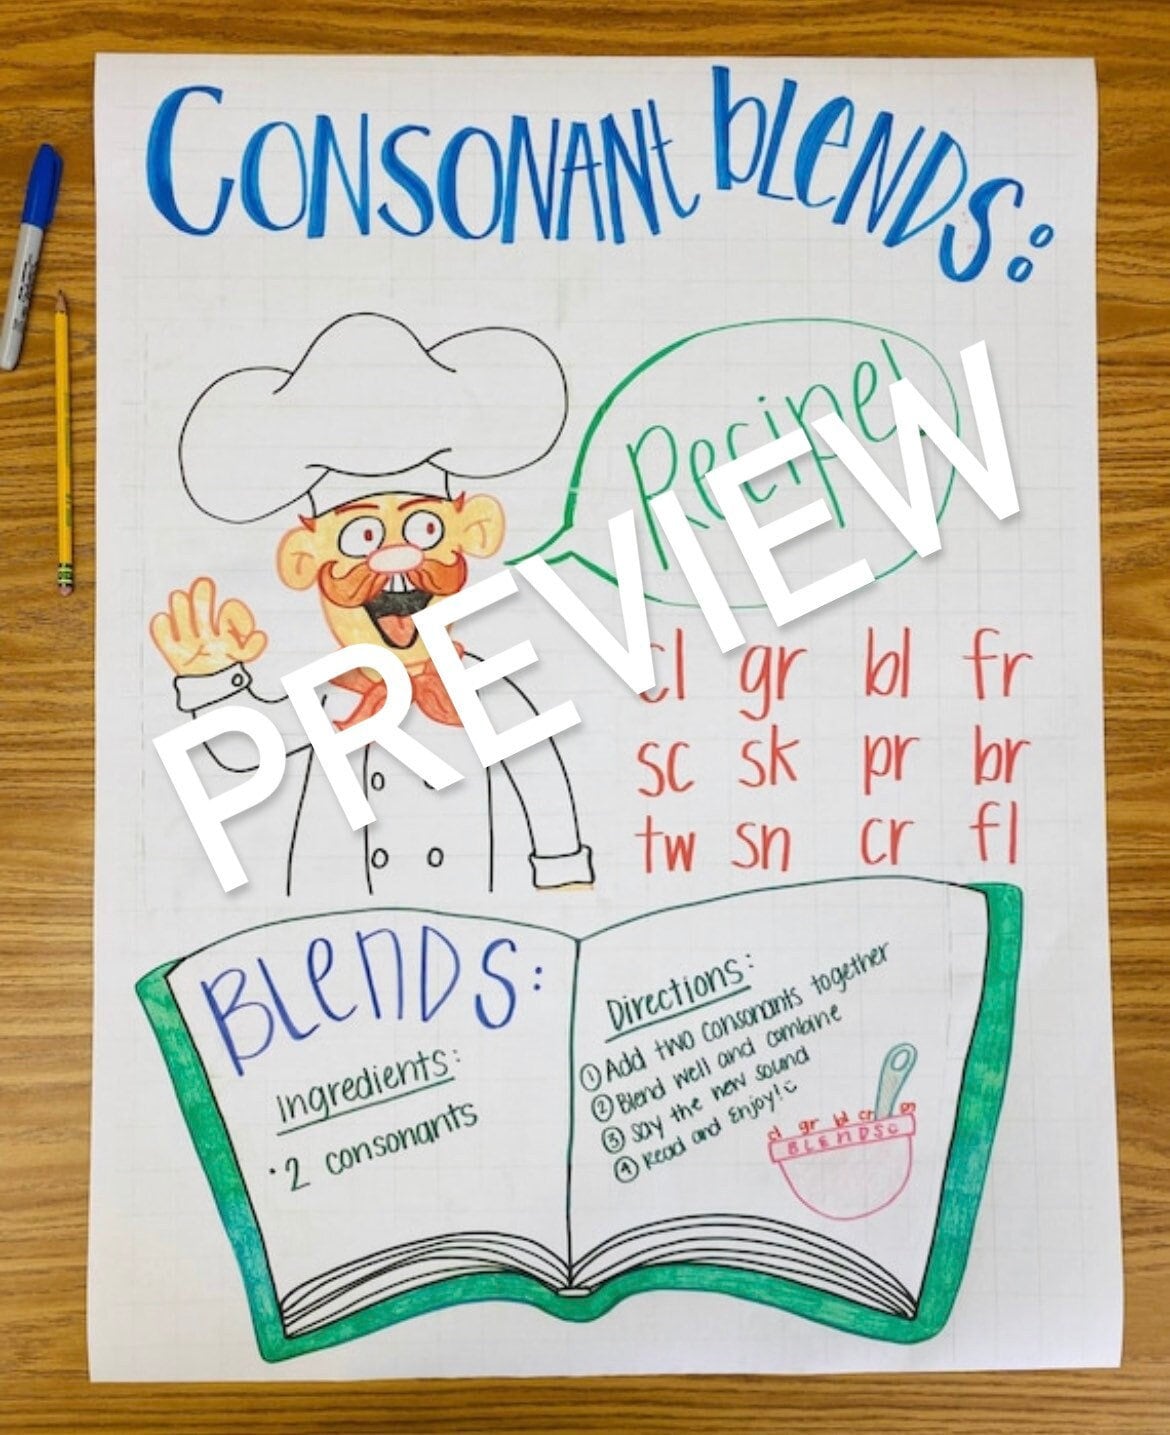 CONSONANt bLeNDS:
Recipe!
PREVIEW
cl gr bl fr
sc sk pr br
tw sn cr fl
BLeNDS:
Ingredients:
• 2 consonants
Directions:
① Add two consonants together
② Blend well and combine
③ Say the new sound
④ Read and Enjoy!
cl gr bl cr
BLENDS